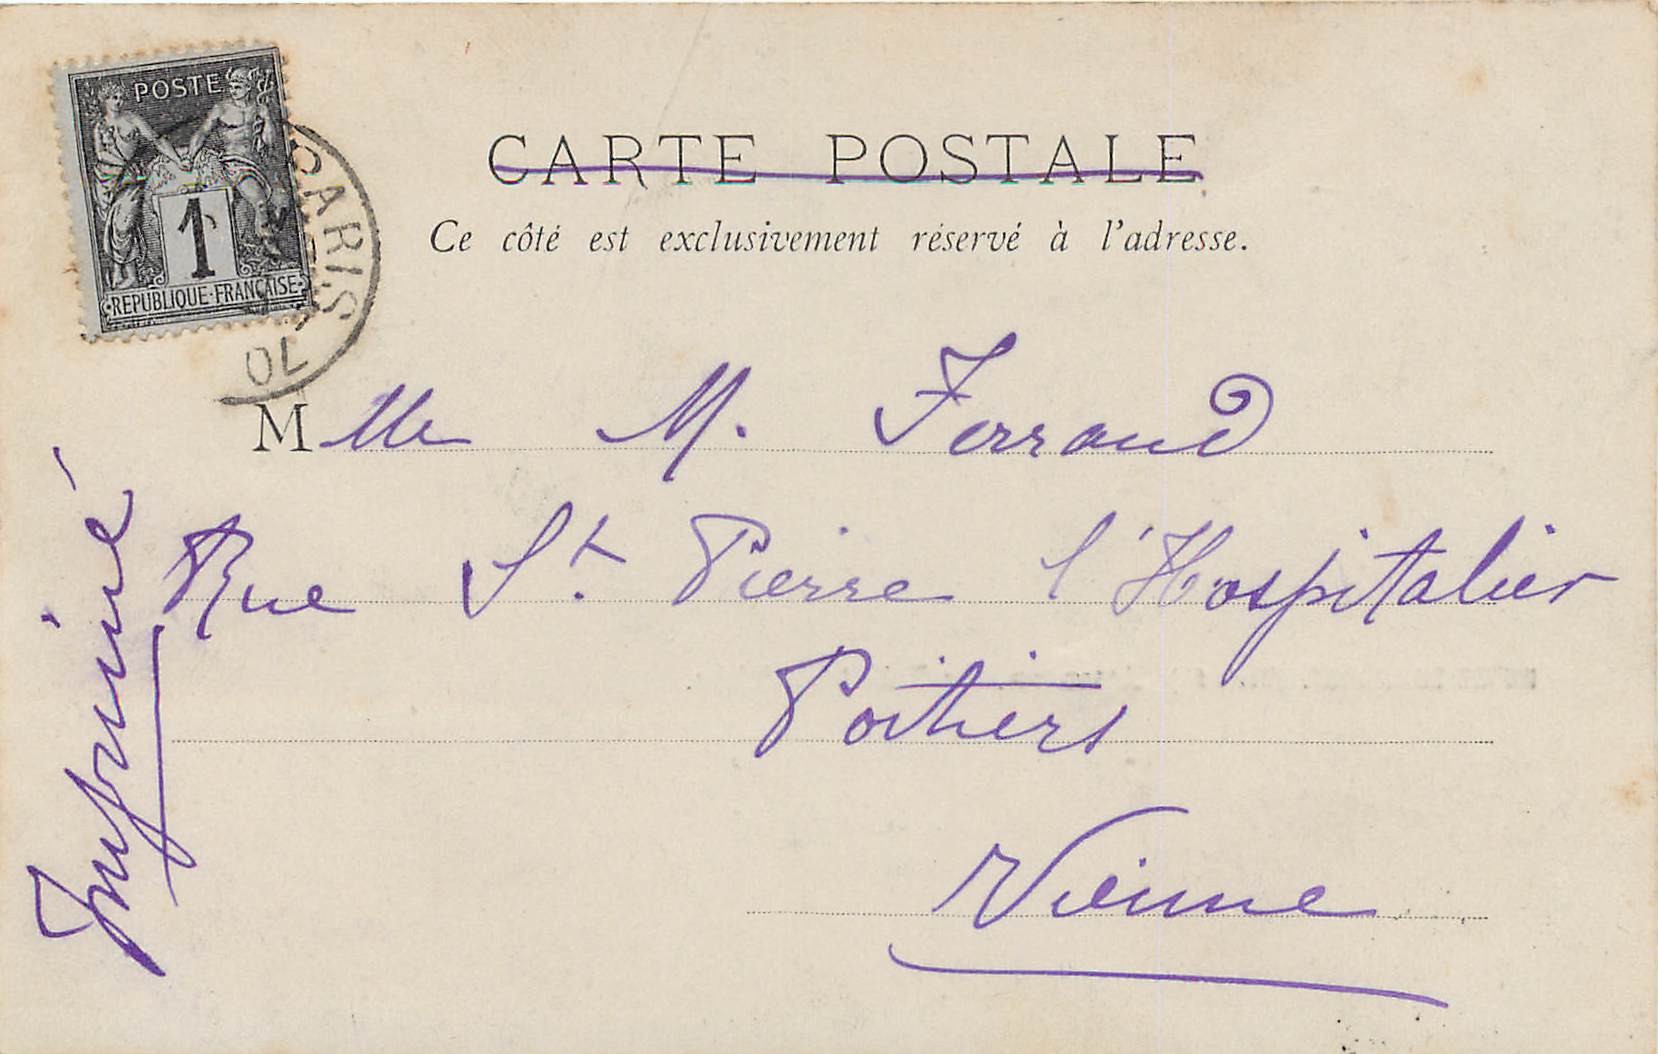 POSTE
1
REPUBLIQUE FRANÇAISE
PARIS
CARTE POSTALE
Ce côté est exclusivement réservé à l'adresse.
Mlle M. Ferrand
Rue St. Pierre l'Hospitalier
Poitiers
Vienne
Imprimé